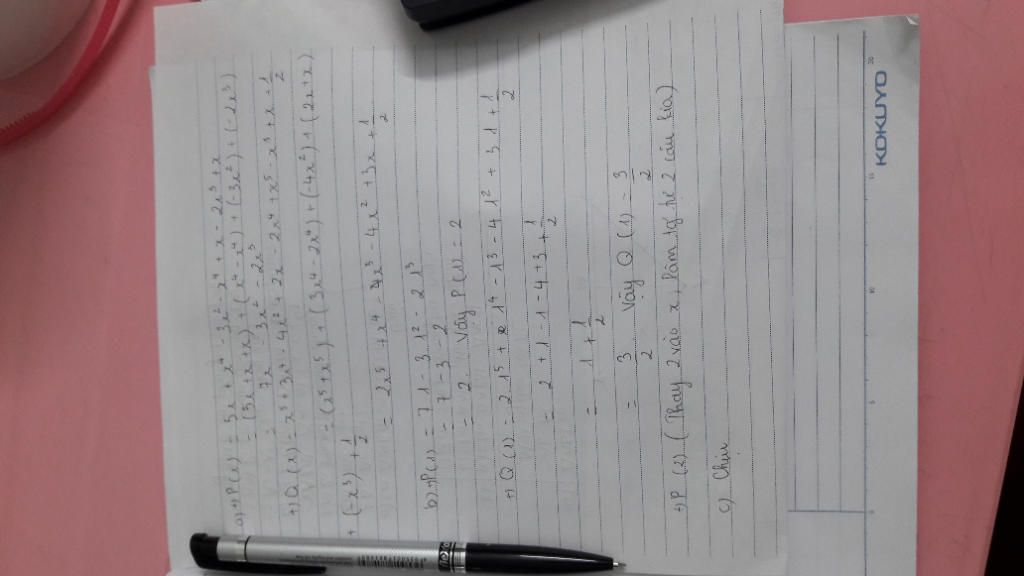 a) +) P(x) = 5x + x⁴ - 3x² - x⁴ + x - 2x³ + x
= (5x + x + x) + (x⁴ - x⁴) + (-3x²) + (-2x³)
= 7x - 3x² - 2x³
+) Q(x) = x⁵ + 3x⁴ - 4x² + 2x - 2x⁴ + x⁵ - x³ + x + 1/2
= (x⁵ + x⁵) + (3x⁴ - 2x⁴) + (-4x²) + (2x + x)
+ (-x³) + 1/2
= 2x⁵ + x⁴ - 4x³ - 4x² + 3x + 1/2
b) +) P(1) = 7.1 - 3.1² - 2.1³
= 7 - 3 - 2
= 2. Vậy P(1) = 2
+) Q(1) = 2.1⁵ + 1⁴ - 1³ - 4.1² + 3.1 + 1/2
= 2 + 1 - 1 - 4 + 3 + 1/2
= 1 + 1/2
= 3/2 Vậy Q(1) = 3/2
+) P(2) (Thay 2 vào x, làm tg tự 2 câu kia)
c) Chịu
KOKUYO